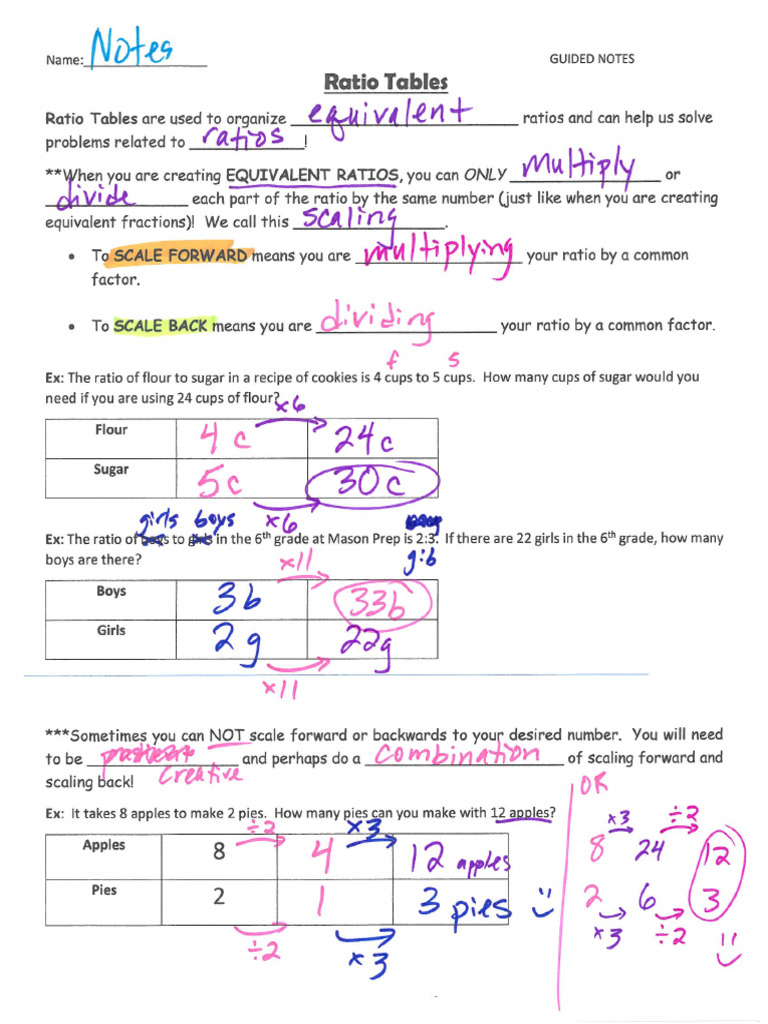 Name: Notes GUIDED NOTES
Ratio Tables
Ratio Tables are used to organize equivalent ratios and can help us solve
problems related to ratios!
**When you are creating EQUIVALENT RATIOS, you can ONLY Multiply or
divide each part of the ratio by the same number (just like when you are creating
equivalent fractions)! We call this scaling.
• To SCALE FORWARD means you are multiplying your ratio by a common
factor.
• To SCALE BACK means you are dividing your ratio by a common factor.
f s
Ex: The ratio of flour to sugar in a recipe of cookies is 4 cups to 5 cups. How many cups of sugar would you
need if you are using 24 cups of flour?
x6
Flour 4 c 24 c
Sugar 5 c 30 c
x6
girls boys
Ex: The ratio of boys to girls in the 6th grade at Mason Prep is 2:3. If there are 22 girls in the 6th grade, how many
g:b
boys are there?
x11
Boys 3b 33b
Girls 2g 22g
x11
***Sometimes you can NOT scale forward or backwards to your desired number. You will need
to be and perhaps do a combination of scaling forward and
Creative
scaling back!
Ex: It takes 8 apples to make 2 pies. How many pies can you make with 12 apples?
÷2 x3
Apples 8 4 12 apples
Pies 2 1 3 pies
÷2 x3
OR
x3 ÷2
8 24 12
2 6 3
x3 ÷2